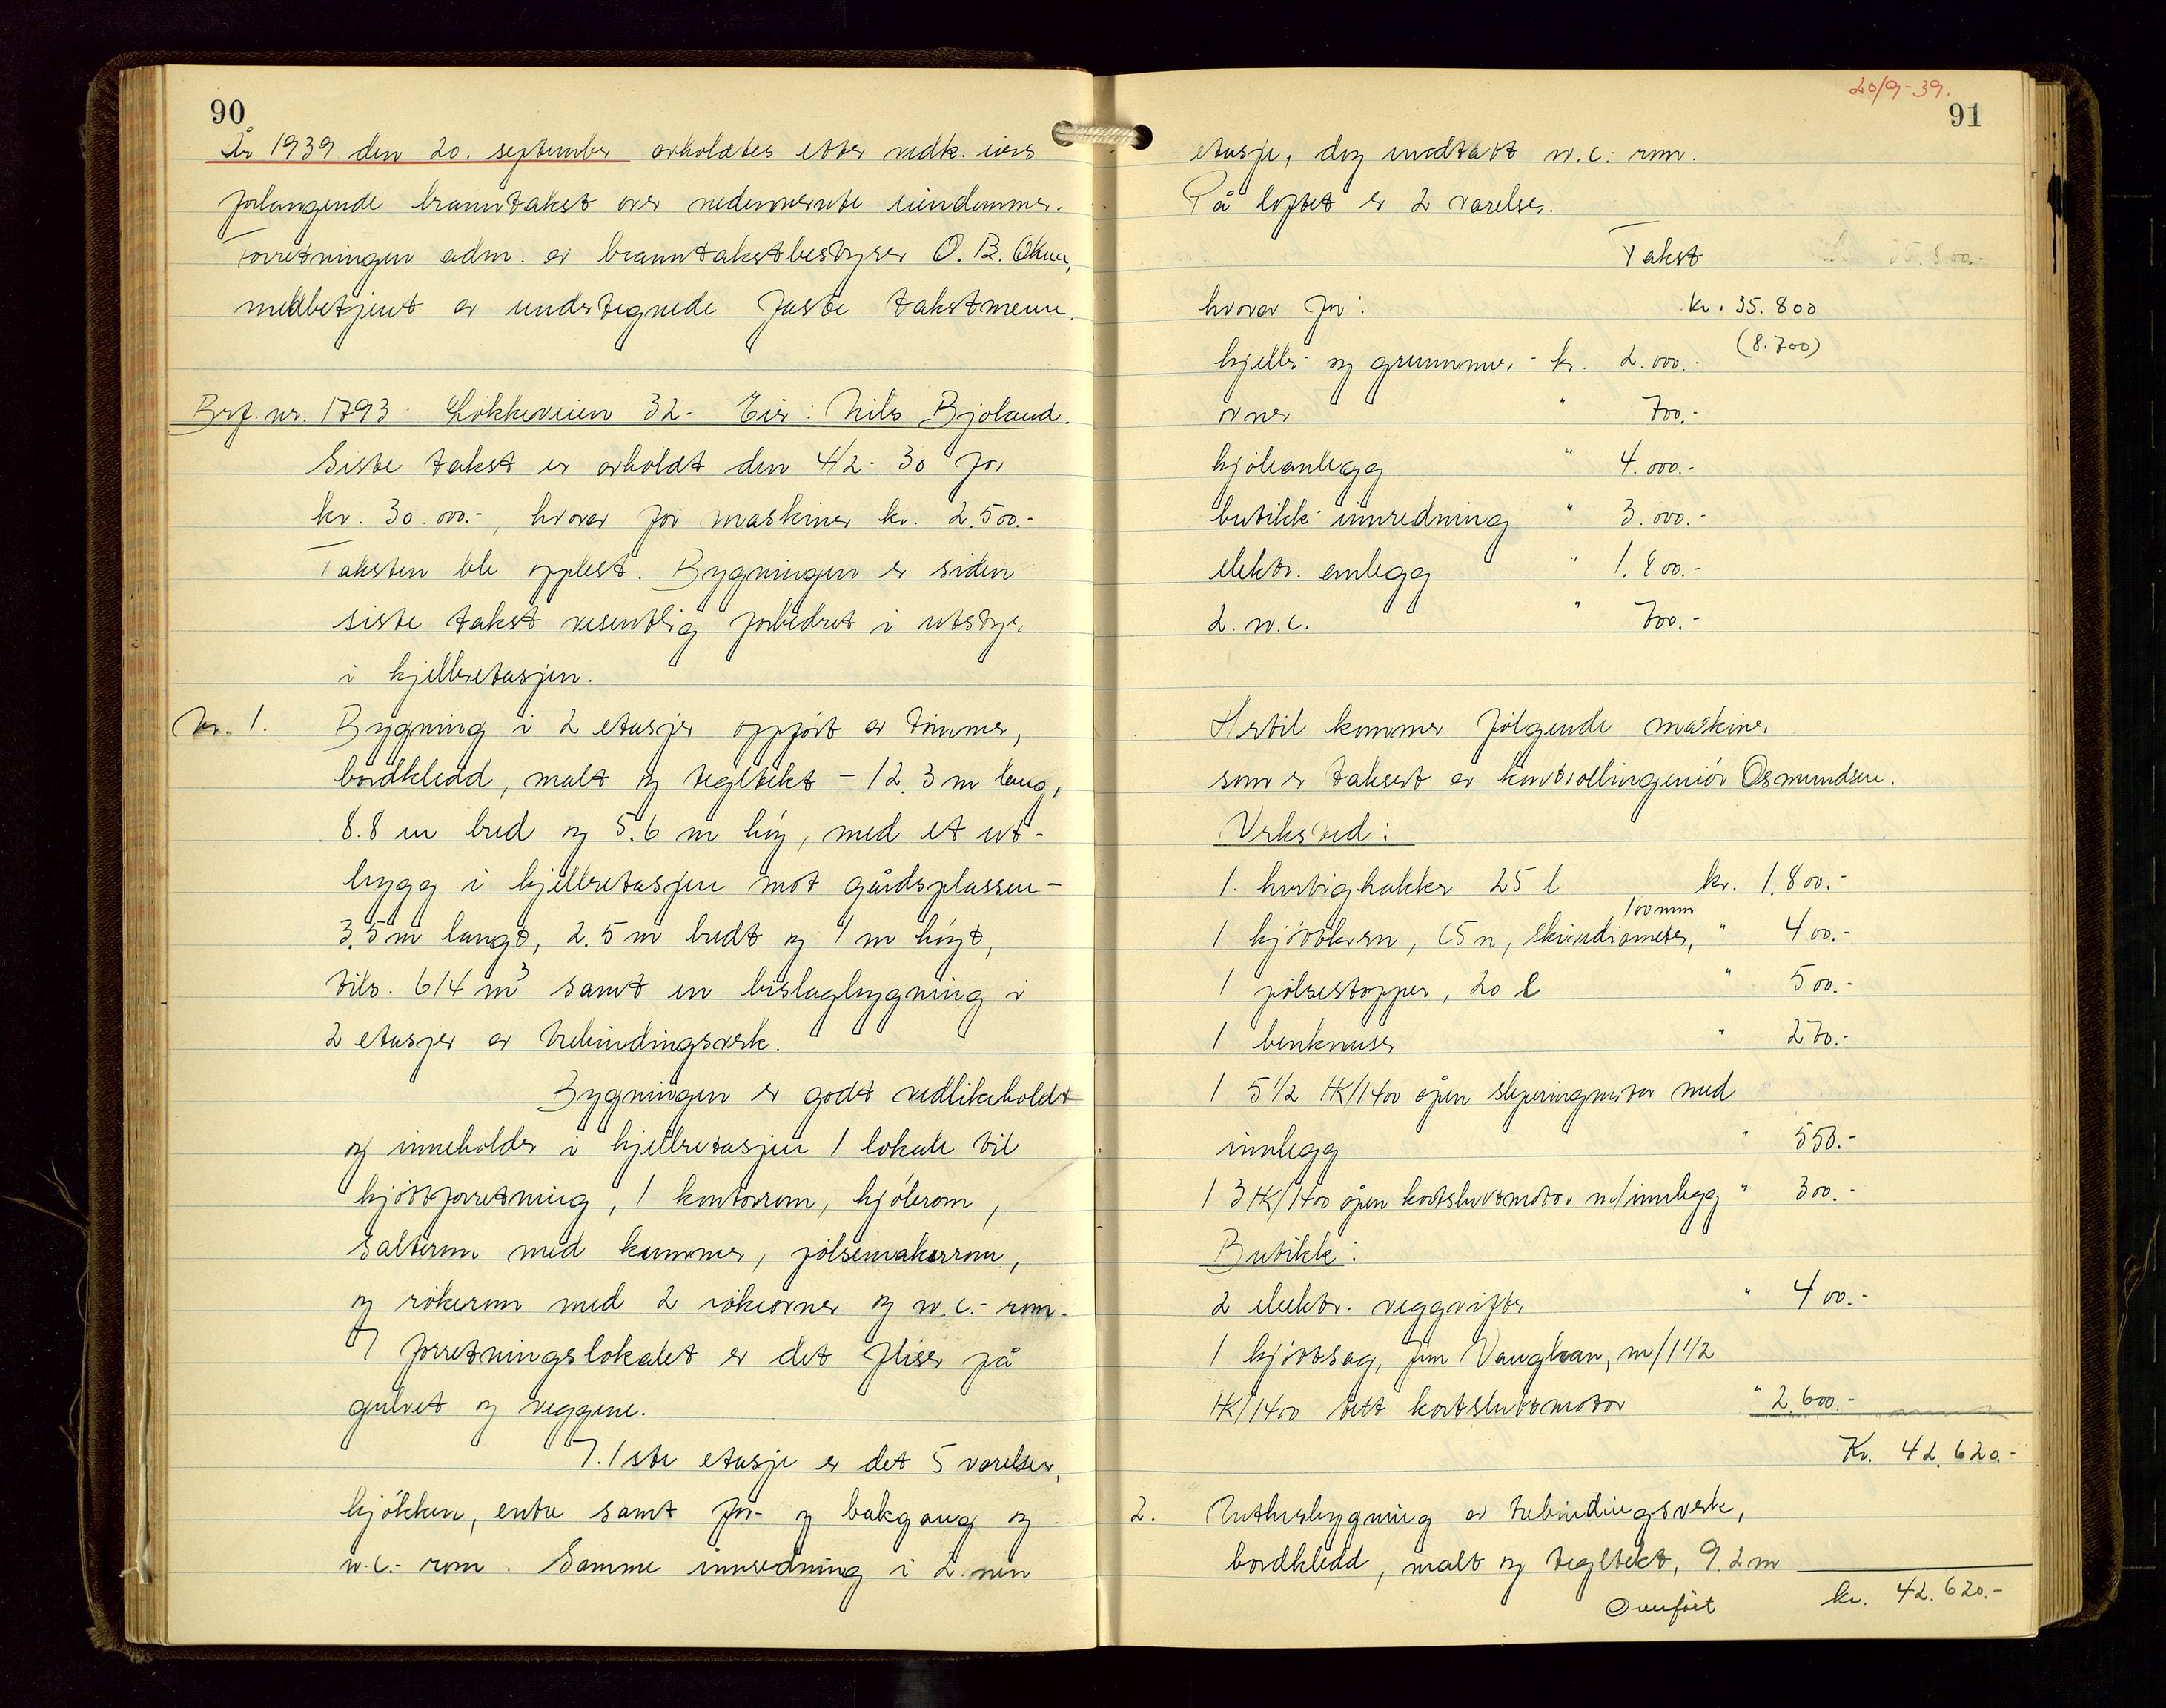 90
År 1939 den 20. september avholdtes etter vedk. eiers
forlangende branntakst over nedennevnte eiendommer.
Forretningen adm. av branntakstbestyrer O. B. Økua,
medbetjent av undertegnede faste takstmenn.
Brf. nr. 1793 - Løkkeveien 32 - Eier: Nils Bjoland.
Siste takst er avholdt den 4/2-30 for
kr. 30.000.-, hvorav for maskiner kr. 2.500.-
Taksten ble opplest. Bygningen er siden
siste takst vesentlig forbedret i utstyr,
i kjelleretasjen.
Nr. 1. Bygning i 2 etasjer oppført av tømmer,
bordkledd, malt og tegltekt - 12.3 m lang,
8.8 m bred og 5.6 m høy, med et ut-
bygg i kjelleretasjen mot gårdsplassen -
3.5 m langt, 2.5 m bredt og 1 m høyt,
tils. 614 m³ samt en bislagbygning i
2 etasjer av trebindingsverk.
Bygningen er godt vedlikeholdt
og inneholder i kjelleretasjen 1 lokale til
kjøttforretning, 1 kontorrom, kjølerom,
salterom med kummer, pølsemakerrom,
og røkerom med 2 røkeovner og w.c.- rom.
I forretningslokalet er det fliser på
gulvet og veggene.
I. 1ste etasje er det 5 værelser,
kjøkken, entre samt for- og bakgang og
w.c.- rom. Samme innredning i 2. nen
20/9-39.
91
etasje, dog undtatt w.c.- rom.
På loftet er 2 værelser.
Takst
hvorav for: kr. 35.800
(8.700)
kjeller- og grunnmur - kr. 2.000.-
ovner " 700.-
kjøleanlegg " 4.000.-
butikk-innredning " 3.000.-
elektr. anlegg " 1.800.-
2. w.c. " 700.-
Hertil kommer følgende maskiner
som er taksert av kontrollingeniør Osmundsen.
Verksted:
1. hurtighakker 25 l kr. 1.800.-
100 mm
1 kjøttkvern, skivediameter, " 400.-
1 pølsestopper, 20 l " 500.-
1 benknuser " 270.-
1 5 1/2 HK/1400 åpen sleperingmotor med
innlegg " 550.-
1 3 HK/1400 åpen kortsluttmotor m/innlegg " 300.-
Butikk:
2 elektr. veggvifter " 400.-
1 kjøttsag, Jim Vaughan, m/1 1/2
HK/1400 tett kortsluttmotor " 2.600.-
Kr. 42.620.-
2. Uthusbygning av trebindingsverk,
bordkledd, malt og tegltekt, 9.2 m
Overført kr. 42.620.-